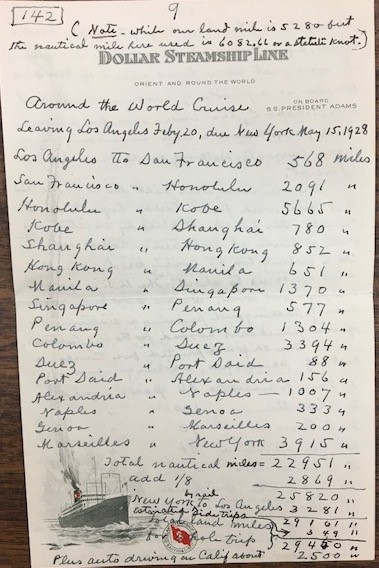 142
9
(Note - while our land mile is 5280 feet
the nautical mile here used is 6082.66 or a statute knot.)
DOLLAR STEAMSHIP LINE
ORIENT AND ROUND THE WORLD
Around the World Cruise
ON BOARD
S.S. PRESIDENT ADAMS
Leaving Los Angeles Feby. 20, due New York May 15, 1928
Los Angeles to San Francisco 568 Miles
San Francisco " Honolulu 2091 "
Honolulu " Kobe 5665 "
Kobe " Shanghai 780 "
Shanghai " Hong Kong 852 "
Hong Kong " Manila 651 "
Manila " Singapore 1370 "
Singapore " Penang 577 "
Penang " Colombo 1304 "
Colombo " Suez 3394 "
Suez " Port Daid 88 "
Port Daid " Alexandria 156 "
Alexandria " Naples — 1007 "
Naples " Genoa 333 "
Genoa " Marseilles 200 "
Marseilles " New York 3915 "
Total nautical miles = 22951 "
add 1/8 2869 "
25820 "
New York to Los Angeles by rail 3281 "
Total land miles 29101 "
estimated side trips
for whole trip 29450 "
Plus auto driving in Calif about 2500 "